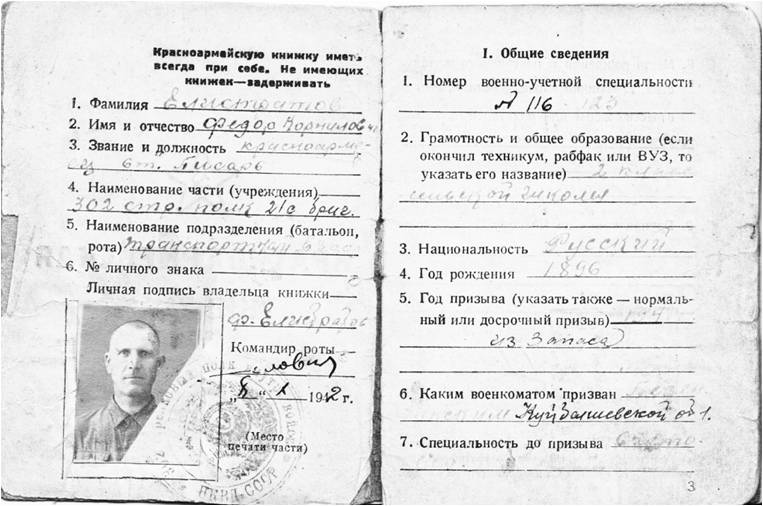 Красноармейскую книжку иметь
всегда при себе. Не имеющих
книжек—задерживать
1. Фамилия Елистратов
2. Имя и отчество Федор Корнилович
3. Звание и должность красноарме-
ец ст. писарь
4. Наименование части (учреждения)
302 стр. полк 21 с бриг.
5. Наименование подразделения (батальон,
рота) транспортная
6. № личного знака
Личная подпись владельца книжки
Ф. Елистратов
Командир роты
"5" 1 1942 г.
(Место
печати части)
НКВД СССР
I. Общие сведения
1. Номер военно-учетной специальности
А 116 123
2. Грамотность и общее образование (если
окончил техникум, рабфак или ВУЗ, то
указать его название) 2 класс
сельской школы
3. Национальность Русский
4. Год рождения 1896
5. Год призыва (указать также — нормаль-
ный или досрочный призыв)
из запаса
6. Каким военкоматом призван
Куйбышевской обл.
7. Специальность до призыва
3